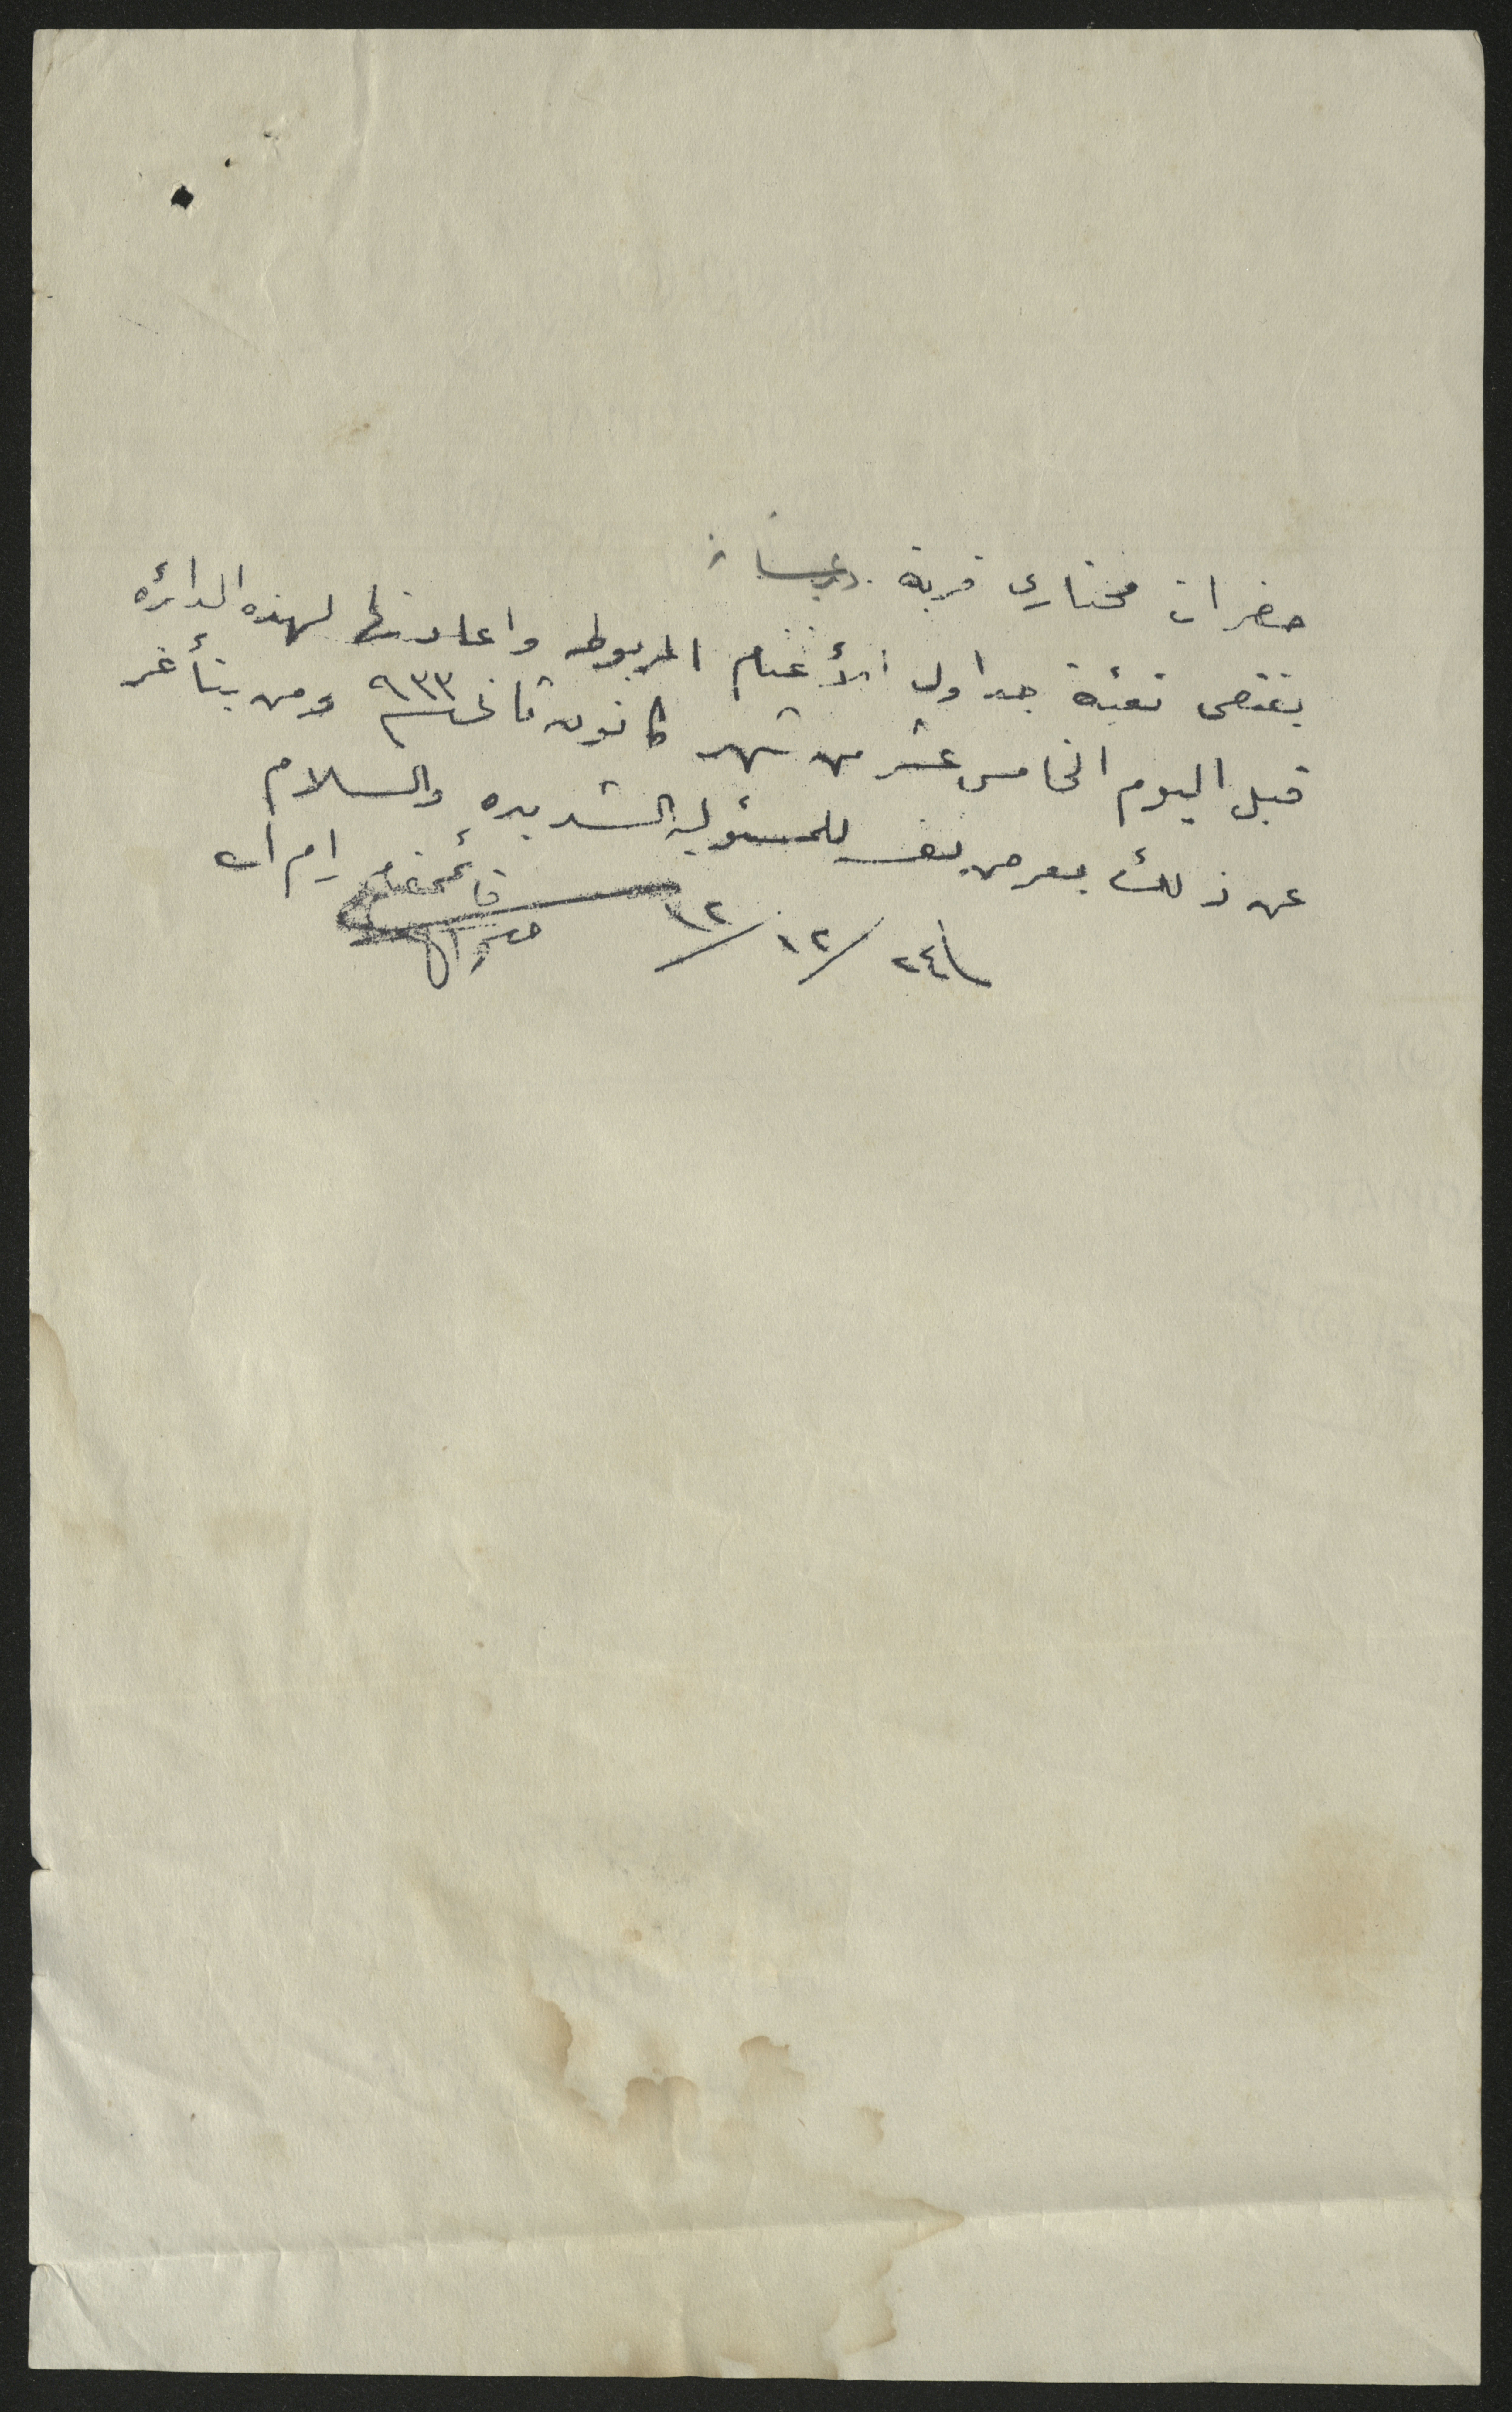 حضرات مختاري قرية دير غسانة
يقتضى تعبئة جداول الأغنام المربوطه واعادتها لهذه الدائره
قبل اليوم الخامس عشر من شهر كانون ثاني سنة ٩٣٣ ومن يتأخر
عن ذلك يعرض نفسه للمسئولية الشديده والسلام
قائمقام رام الله
٢٤/١٢/٣٢